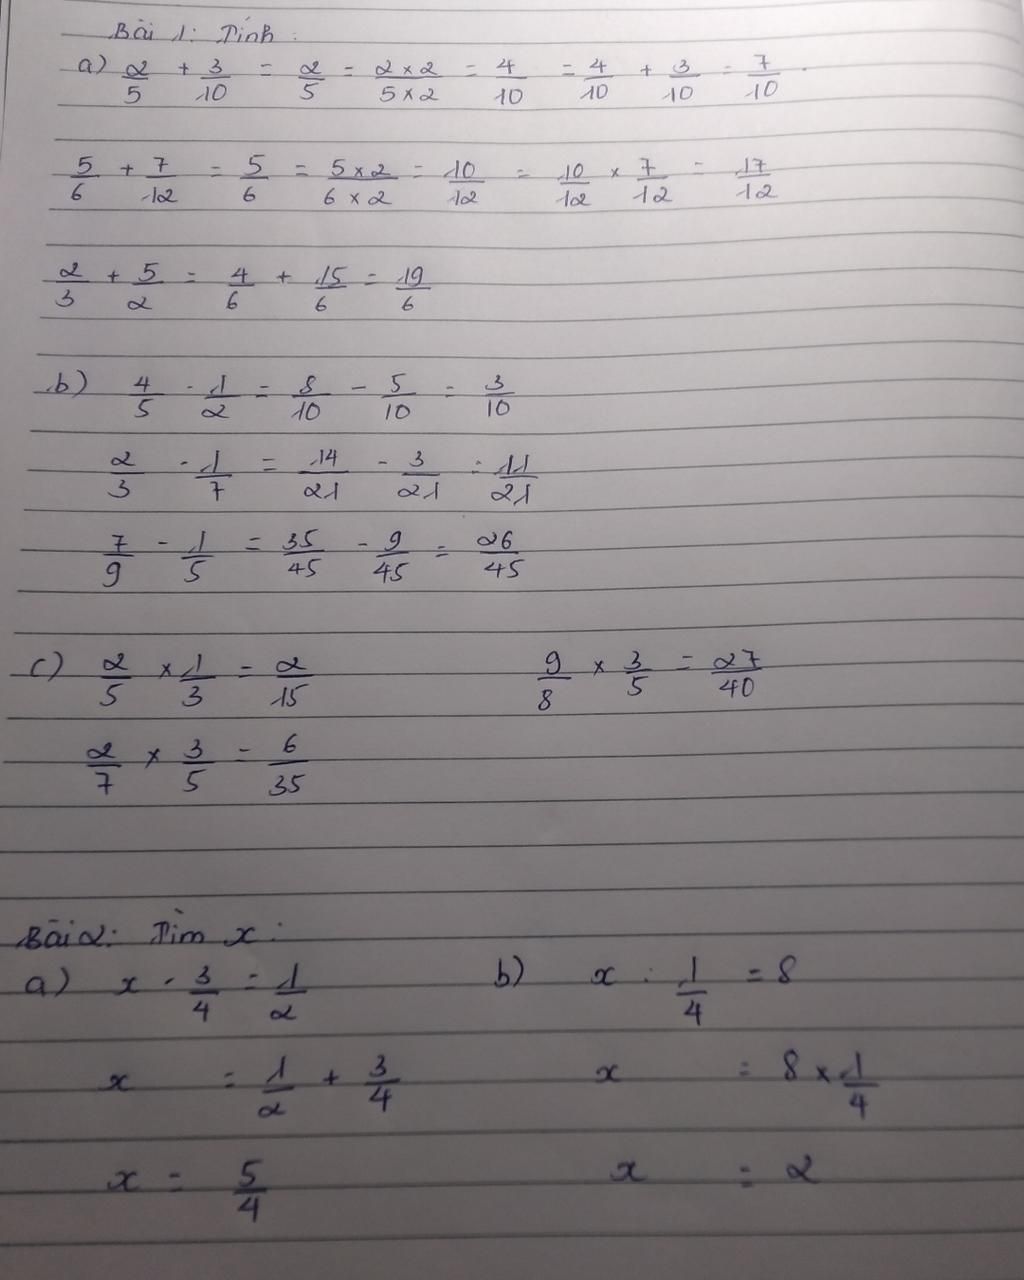 Bài 1: Tính:
a) 2/5 + 3/10 = 2/5 = 2×2/5×2 = 4/10 = 4/10 + 3/10 = 7/10.
5/6 + 7/12 = 5/6 = 5×2/6×2 = 10/12 = 10/12 × 7/12 = 17/12
2/3 + 5/2 = 4/6 + 15/6 = 19/6
b) 4/5 - 1/2 = 8/10 - 5/10 = 3/10
2/3 - 1/7 = 14/21 - 3/21 = 11/21
7/9 - 1/5 = 35/45 - 9/45 = 26/45
c) 2/5 × 1/3 = 2/15 9/8 × 3/5 = 27/40
2/7 × 3/5 = 6/35
Bài 2: Tìm x:
a) x - 3/4 = 1/2 b) x : 1/4 = 8
x = 1/2 + 3/4 x = 8 × 1/4
x = 5/4 x = 2